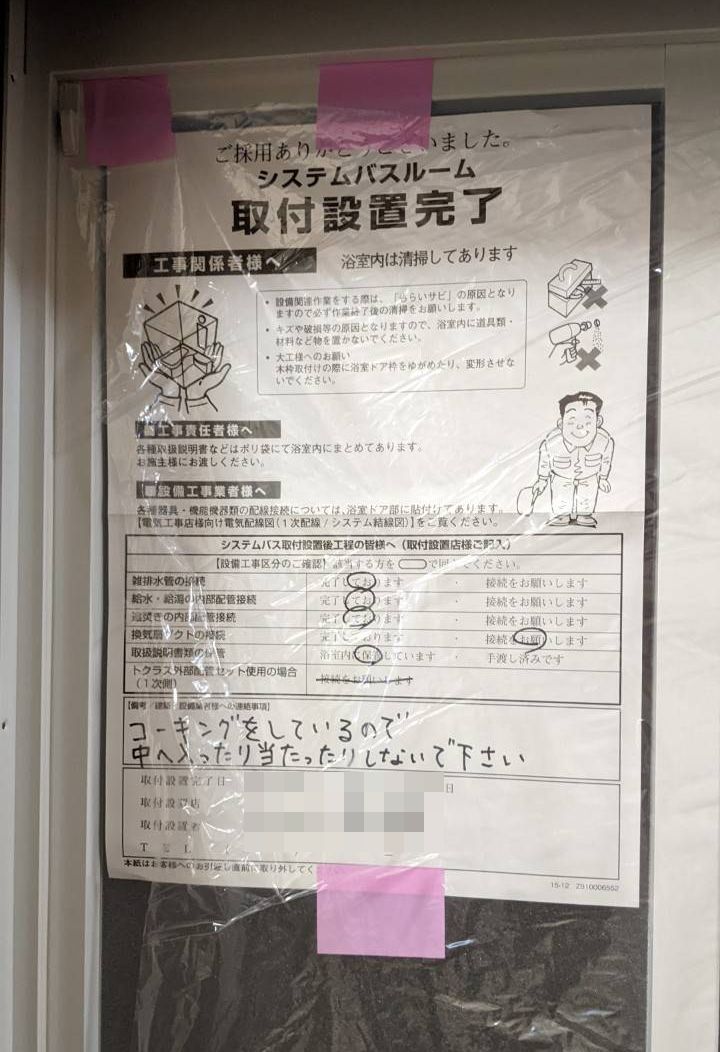 ご採用ありがとうございました。
システムバスルーム
取付設置完了
工事関係者様へ 浴室内は清掃してあります
• 設備関連作業をする際は、「もらいサビ」の原因となり
ますので必ず作業終了後の清掃をお願いします。
• キズや破損等の原因となりますので、浴室内に道具類・
材料など物を置かないでください。
• 大工様へのお願い
木枠取付けの際に浴室ドア枠をゆがめたり、変形させな
いでください。
工事責任者様へ
各種取扱説明書などはポリ袋にて浴室内にまとめてあります。
お施主様にお渡しください。
■設備工事業者様へ
各種器具・機能機器類の配線接続については、浴室ドア部に貼付けてあります。
【電気工事店様向け電気配線図(1次配線/システム結線図)】をご覧ください。
システムバス取付設置後工程の皆様へ(取付設置店様ご記入)
【設備工事区分のご確認】該当する方を で囲んでください。
雑排水管の接続 完了しております ・ 接続をお願いします
給水・給湯の内部配管接続 完了しております ・ 接続をお願いします
追焚きの内部配管接続 完了しております ・ 接続をお願いします
換気扇ダクトの接続 完了しております ・ 接続をお願いします
取扱説明書類の保管 浴室内に保管しています ・ 手渡し済みです
トクラス外部配管セット使用の場合
(1次側) 接続をお願いします
【備考/建築・設備業者様への連絡事項】
コーキングをしているので
中へ入ったり当たったりしないで下さい
取付設置完了日 日
取付設置店
取付設置者
TEL
本紙はお客様へのお引渡し直前に取り外してく
15-12 Z910006552